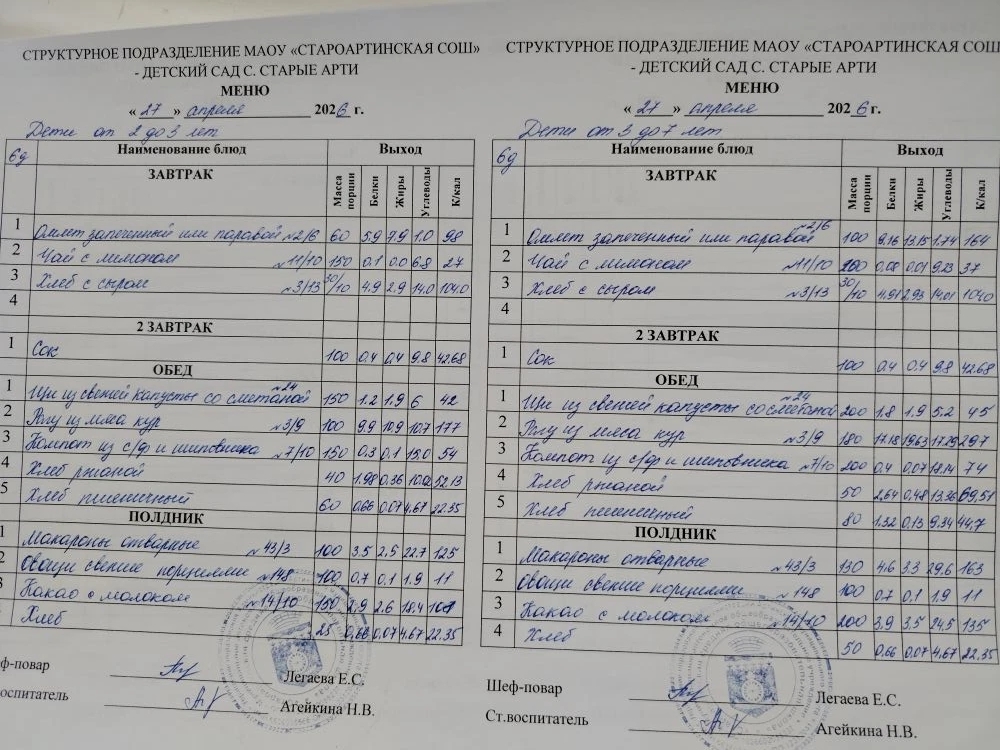 СТРУКТУРНОЕ ПОДРАЗДЕЛЕНИЕ МАОУ «СТАРОАРТИНСКАЯ СОШ»
- ДЕТСКИЙ САД С. СТАРЫЕ АРТИ
МЕНЮ
« 27 » апреля 2026 г.
Дети от 2 до 3 лет
6д Наименование блюд Выход
ЗАВТРАК Масса порции Белки Жиры Углеводы К/кал
1 Омлет запеченный или паровой №2/6 60 5.9 7.9 1.0 98
2 Чай с лимоном №11/10 150 0.1 0.0 6.8 27
3 Хлеб с сыром №3/13 30/10 4.9 2.9 14.0 104.0
4
2 ЗАВТРАК
1 Сок 100 0,4 0,4 9.8 42.68
ОБЕД
1 Щи из свежей капусты со сметаной №24 150 1.2 1.9 6 42
2 Рагу из мяса кур №3/9 100 9.9 10.9 10.7 177
3 Компот из с/ф и шиповника №7/10 150 0.3 0.1 15.0 54
4 Хлеб ржаной 40 1.98 0.36 10.02 52.13
5 Хлеб пшеничный 60 0.66 0.07 4.67 22.35
ПОЛДНИК
1 Макароны отварные №43/3 100 3.5 2.5 22.7 125
2 Овощи свежие порциями №148 100 0.7 0.1 1.9 11
3 Какао с молоком №14/10 150 2.9 2.6 18.4 101
Хлеб 25 0,66 0,07 4.67 22.35
еф-повар Легаева Е.С.
воспитатель Агейкина Н.В.
СТРУКТУРНОЕ ПОДРАЗДЕЛЕНИЕ МАОУ «СТАРОАРТИНСКАЯ СОШ
- ДЕТСКИЙ САД С. СТАРЫЕ АРТИ
МЕНЮ
« 27 » апреля 2026 г.
Дети от 3 до 7 лет
6д Наименование блюд Выход
ЗАВТРАК Масса порции Белки Жиры Углеводы К/кал
1 Омлет запеченный или паровой №2/6 100 9.16 13.15 1.74 164
2 Чай с лимоном №11/10 200 0,08 0,01 9.23 37
3 Хлеб с сыром №3/13 30/10 4.91 2.93 14.01 104.0
4
2 ЗАВТРАК
1 Сок 100 0,4 0.4 9.8 42.68
ОБЕД
1 Щи из свежей капусты со сметаной №24 200 1.8 1.9 5.2 45
2 Рагу из мяса кур №3/9 180 17.18 19.63 17.79 297
3 Компот из с/ф и шиповника №7/10 200 0,4 0.07 18.14 74
4 Хлеб ржаной 50 2,64 0,48 13.36 69,51
5 Хлеб пшеничный 80 1.32 0,13 9.34 44,7
ПОЛДНИК
1 Макароны отварные №43/3 130 4.6 3.3 29.6 163
2 Овощи свежие порциями №148 100 0.7 0.1 1.9 11
3 Какао с молоком №14/10 200 3.9 3.5 24,5 135
4 Хлеб 50 0.66 0,07 4,67 22.35
Шеф-повар Легаева Е.С.
Ст.воспитатель Агейкина Н.В.